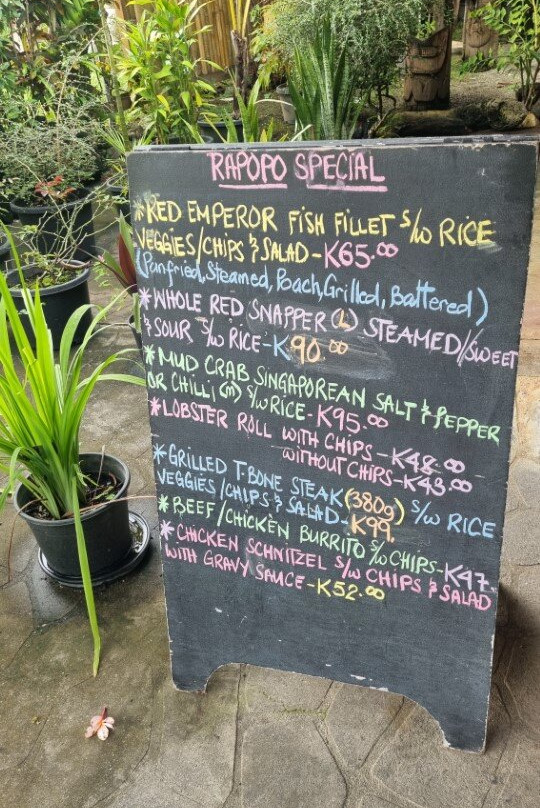 RAPOPO SPECIAL
*RED EMPEROR FISH FILLET S/W RICE
VEGGIES/CHIPS & SALAD-K65.00
(Panfried, Steamed, Poach, Grilled, Battered)
*WHOLE RED SNAPPER (L) STEAMED/SWEET
& SOUR S/W RICE-K90.00
*MUD CRAB SINGAPOREAN SALT & PEPPER
OR CHILLI (M) S/W RICE-K95.00
*LOBSTER ROLL WITH CHIPS-K48.00
WITHOUT CHIPS-K43.00
*GRILLED T-BONE STEAK (380g) S/W RICE
VEGGIES/CHIPS & SALAD-K99.
*BEEF/CHICKEN BURRITO S/W CHIPS-K47.
*CHICKEN SCHNITZEL S/W CHIPS & SALAD
WITH GRAVY SAUCE-K52.00